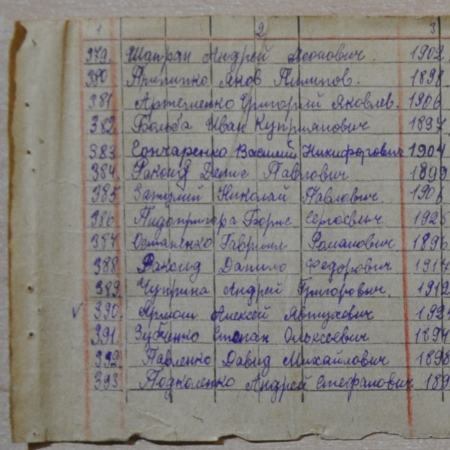 1 2 3
379. Шапран Андрей Леонович. 1902
380 Прилипко Яков Пилипов. 1898
381 Артеменко Григорий Яковлев. 1906
382 Бальба Иван Куприянович 1897
383 Гончаренко Василий Никифорович 1904
384. Ракоид Денис Павлович 1899
385 Затулий Николай Павлович. 1906
386 Пидопригора Борис Сергоевич 1925
387 Остапенко Гавриил Романович 1896
388 Ракоид Данило Федорович 1914
389 Чуприна Андрей Григорович. 1912
v 390 Ярмош Алексей Явтухович
391. Зубченко Степан Ольесеевич 1894
392 Павленко Давид Михайлович 1898
393 Подколенко Андрей Стефанович 189